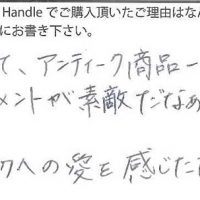 Handle でご購入頂いたご理由はなん
にお書き下さい。
て、アンティーク商品一
メントが素敵だなあ
クへの愛を感じた